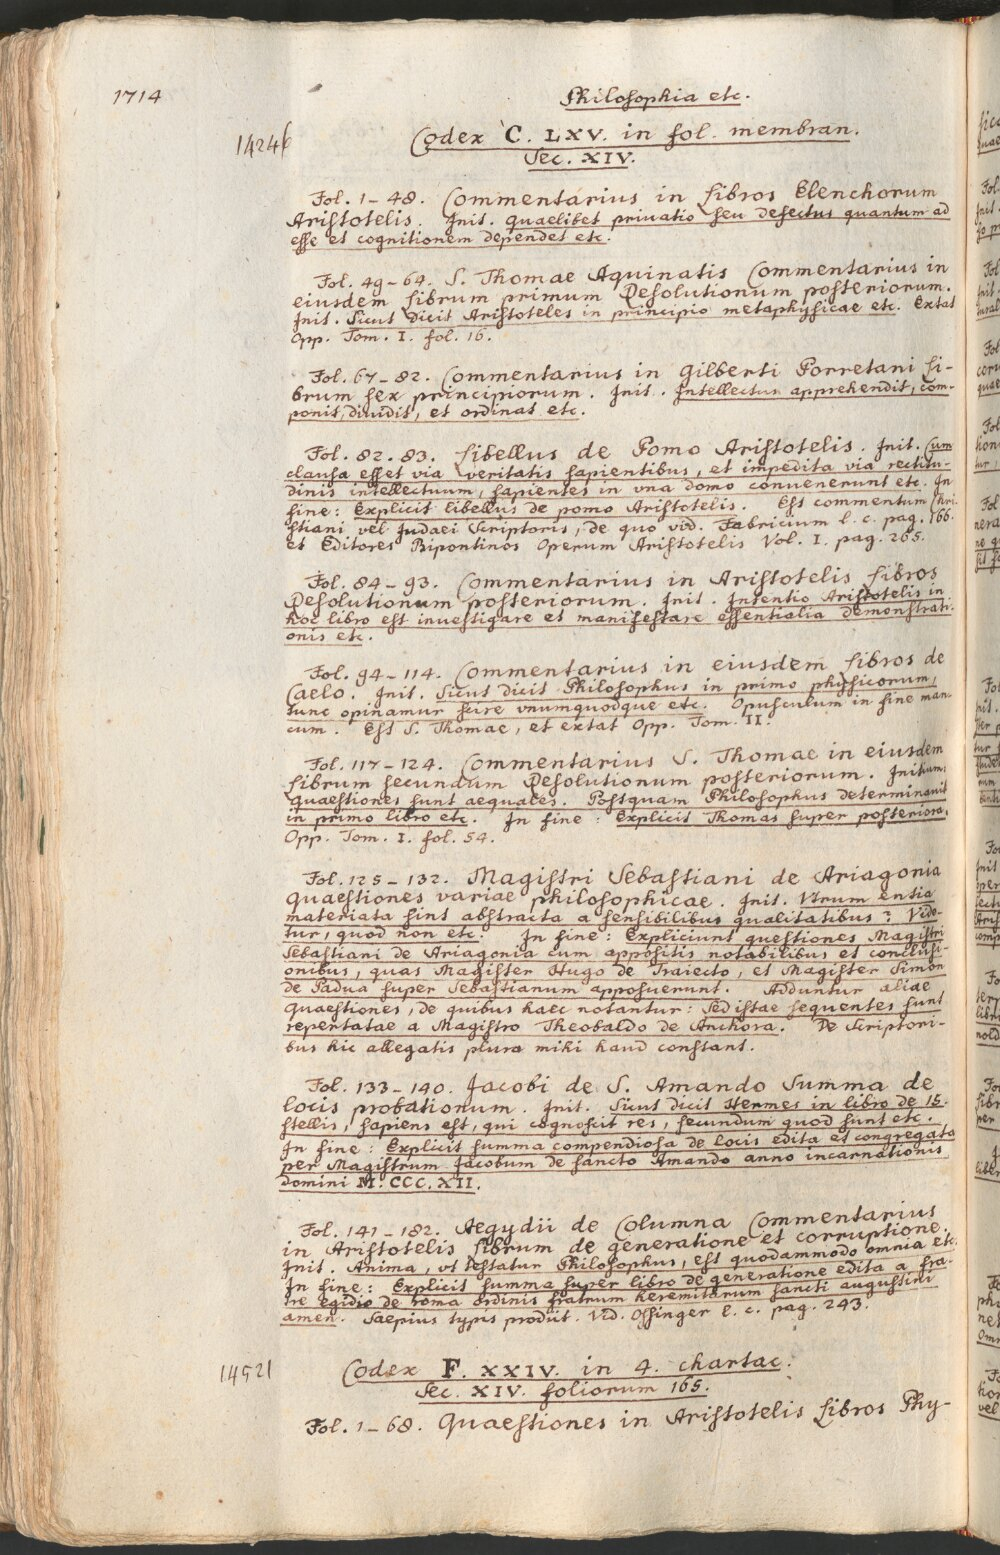 1714
Philosophia etc.
14246
Codex C. LXV. in fol. membran.
Sec. XIV.
Fol. 1-48. Commentarius in libros Elenchorum
Aristotelis. Init. quaelibet priuatio seu defectus quantum ad
esse et cognitionem dependet etc.
Fol. 49-64. S. Thomae Aquinatis Commentarius in
eiusdem librum primum Resolutionum posteriorum.
Init. Sicut dicit Aristoteles in principio metaphysicae etc. Extat
Opp. Tom. I. fol. 16.
Fol. 67-82. Commentarius in Gilberti Porretani li-
brum sex principiorum. Init. Intellectus apprehendit, com-
ponit, diuidit, et ordinat etc.
Fol. 82. 83. Libellus de Pomo Aristotelis. Init. Cum
clausa esset via veritatis sapientibus, et impedita via rectitu-
dinis intellectuum, sapientes in vna domo conuenerunt etc. In
fine: Explicit libellus de pomo Aristotelis. Est commentum Chri-
stiani vel Judaei Scriptoris, de quo vid. Fabricium l. c. pag. 166.
et Editores Bipontinos Operum Aristotelis Vol. I. pag. 265.
Fol. 84-93. Commentarius in Aristotelis libros
Resolutionum posteriorum. Init. Intentio Aristotelis in
hoc libro est inuestigare et manifestare essentialia demonstrati-
onis etc.
Fol. 94-114. Commentarius in eiusdem libros de
Caelo. Init. Sicut dicit Philosophus in primo physicorum,
tunc opinamur scire vnumquodque etc. Opusculum in fine man-
cum. Est S. Thomae, et extat Opp. Tom. II.
Fol. 117-124. Commentarius S. Thomae in eiusdem
librum secundum Resolutionum posteriorum. Initium:
Quaestiones sunt aequales. Postquam Philosophus determinauit
in primo libro etc. In fine: Explicit Thomas super posteriora.
Opp. Tom. I. fol. 54.
Fol. 125-132. Magistri Sebastiani de Ariagonia
quaestiones variae philosophicae. Init. Vtrum entia
materiata sint abstracta a sensibilibus qualitatibus? Vide-
tur, quod non etc. In fine: Expliciunt questiones Magistri
Sebastiani de Ariagonia cum appositis notabilibus et conclusi-
onibus, quas Magister Hugo de Traiecto, et Magister Simon
de Padua super Sebastianum apposuerunt. Adduntur aliae
quaestiones, de quibus haec notantur: Sed istae sequentes sunt
reportatae a Magistro Theobaldo de Anchora. De Scriptori-
bus hic allegatis plura mihi haud constant.
Fol. 133-140. Jacobi de S. Amando Summa de
locis probationum. Init. Sicut dicit Hermes in libro de 15.
stellis, sapiens est, qui cognoscit res, secundum quod sunt etc.
In fine: Explicit summa compendiosa de locis edita et congregata
per Magistrum Jacobum de sancto Amando anno incarnationis
domini M. CCC. XII.
Fol. 141-182. Aegydii de Columna Commentarius
in Aristotelis librum de generatione et corruptione.
Init. Anima, vt testatur Philosophus, est quodammodo omnia etc.
In fine: Explicit summa super libro de generatione edita a fra-
tre egidio de roma ordinis fratrum heremitarum sancti augustini
amen. Saepius typis prodiit. Vid. Ossinger l. c. pag. 243.
14521
Codex F. XXIV. in 4. chartac.
Sec. XIV. foliorum 165.
Fol. 1-68. Quaestiones in Aristotelis libros Phy-